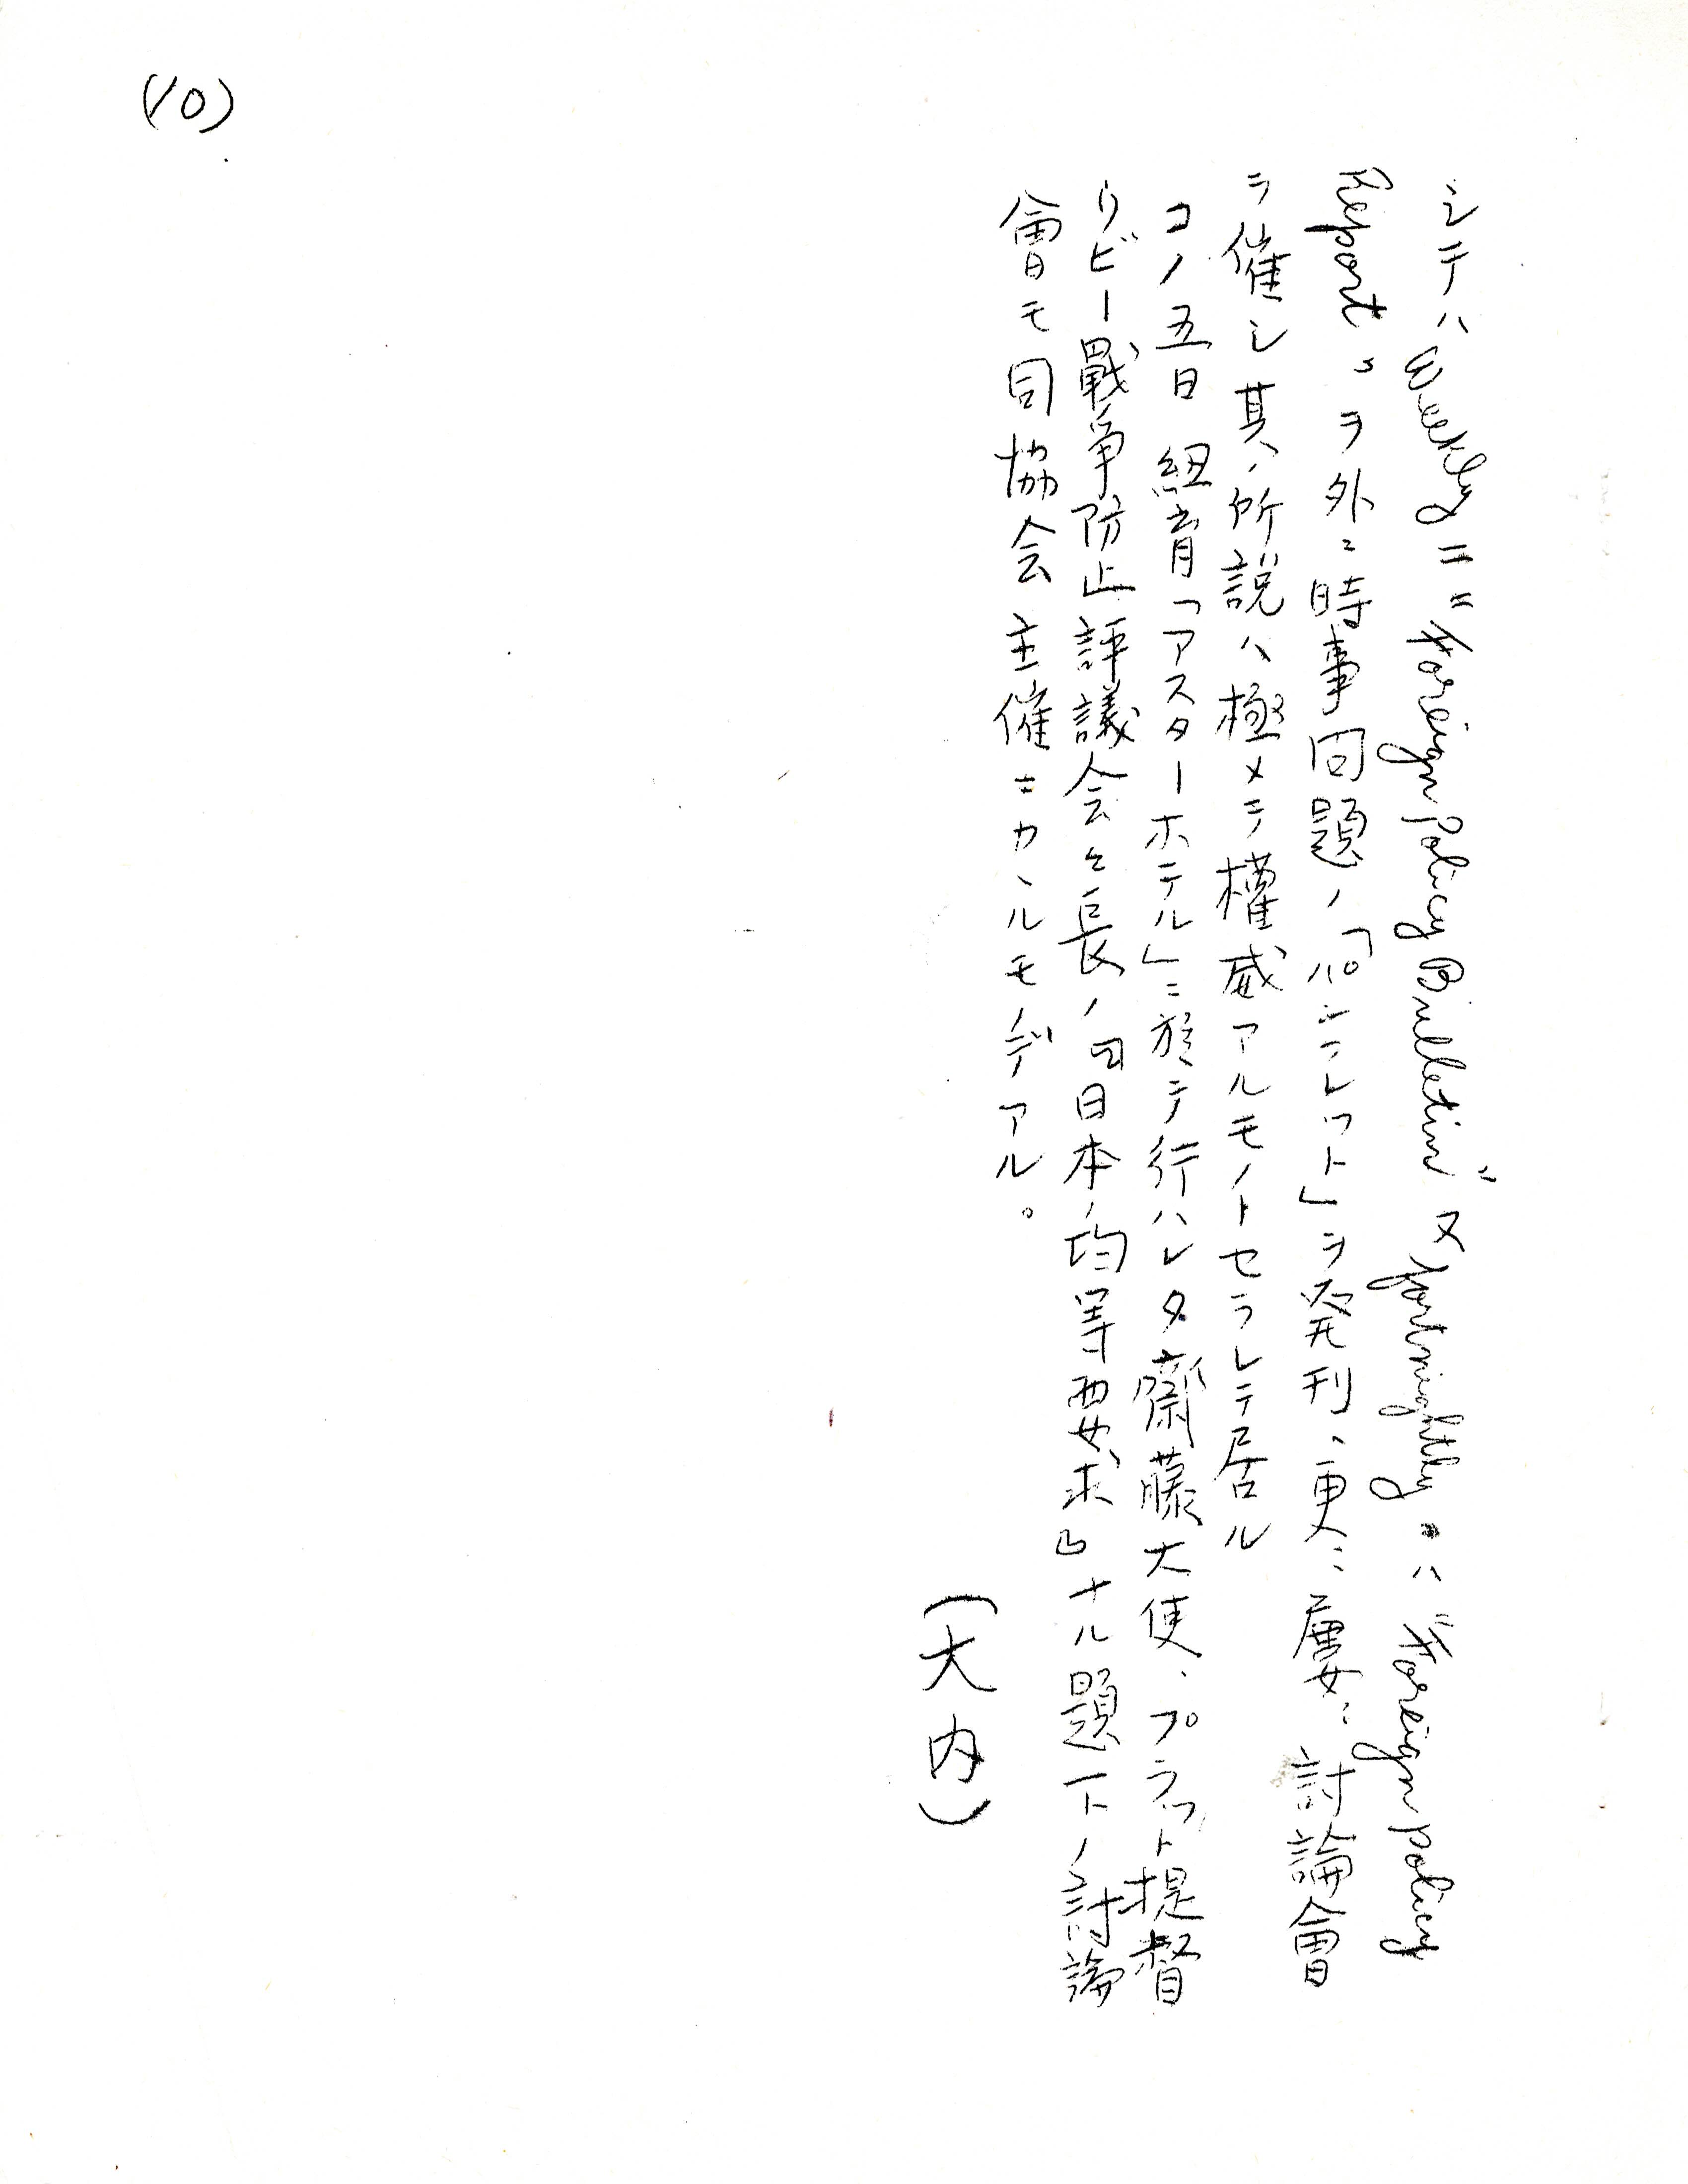 (10)
シテハ Weekly ニ "Foreign Policy Bulletin" 又 fortnightly ニハ "Foreign policy
Report" ヲ外ニ時事問題ノ「パンフレット」ヲ発刊、更ニ屢々討論會
ヲ催シ其ノ所説ハ極メテ權威アルモノトセラレテ居ル
コノ五日 紐育「アスターホテル」ニ於テ行ハレタ齋藤大使、プラット提督
リビー戰争防止評議会々長ノ『日本ノ均等要求』ナル題下ノ討論
會モ同協会主催ニカヽルモノデアル。
(大内)